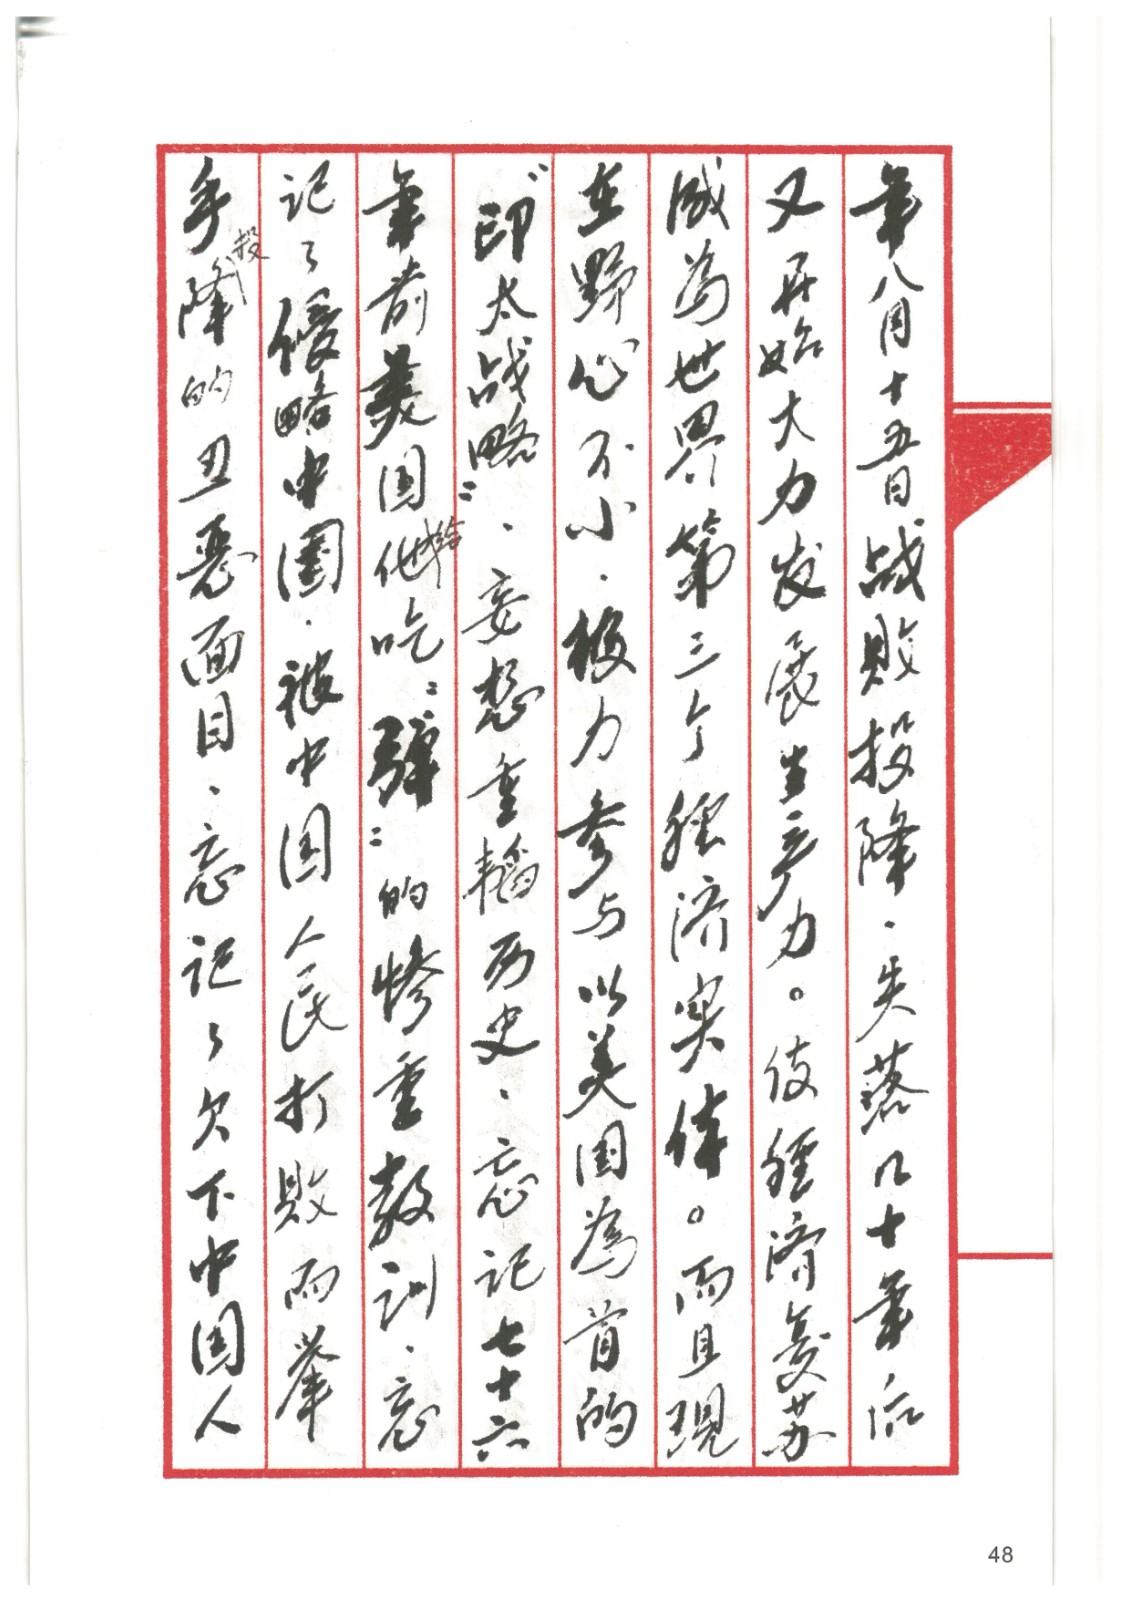 年八月十五日战败投降、失落几十年后
又再始大力发展生产力。使经济复苏
成為世界第三个经济实体。而且现
在野心不小、极力参与以美国為首的
“印太战略”、妄想重蹈历史、忘记七十六
年前美国给他吃“弹”的惨重教训、忘
记了侵略中國、被中国人民打败而举
手投降的丑恶面目、忘记了欠下中国人
48